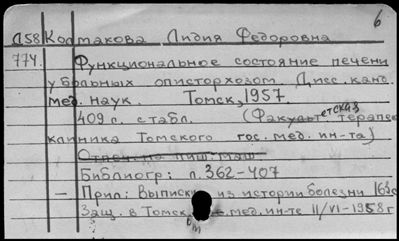 6
Д58 Колмакова Лидия Федоровна
774. Функциональное состояние печени
у больных описторхозом. Дисс. канд.
мед. наук. Томск, 1957.
409 с. с табл. (Факультетская терапев.
клиника Томского гос. мед. ин-та)
Отпеч. на пиш. маш.
Библиогр: л. 362-407
— Прил: Выписки из истории болезни 163с
Защ. в Томск. мед. ин-те 11/VI-1958г